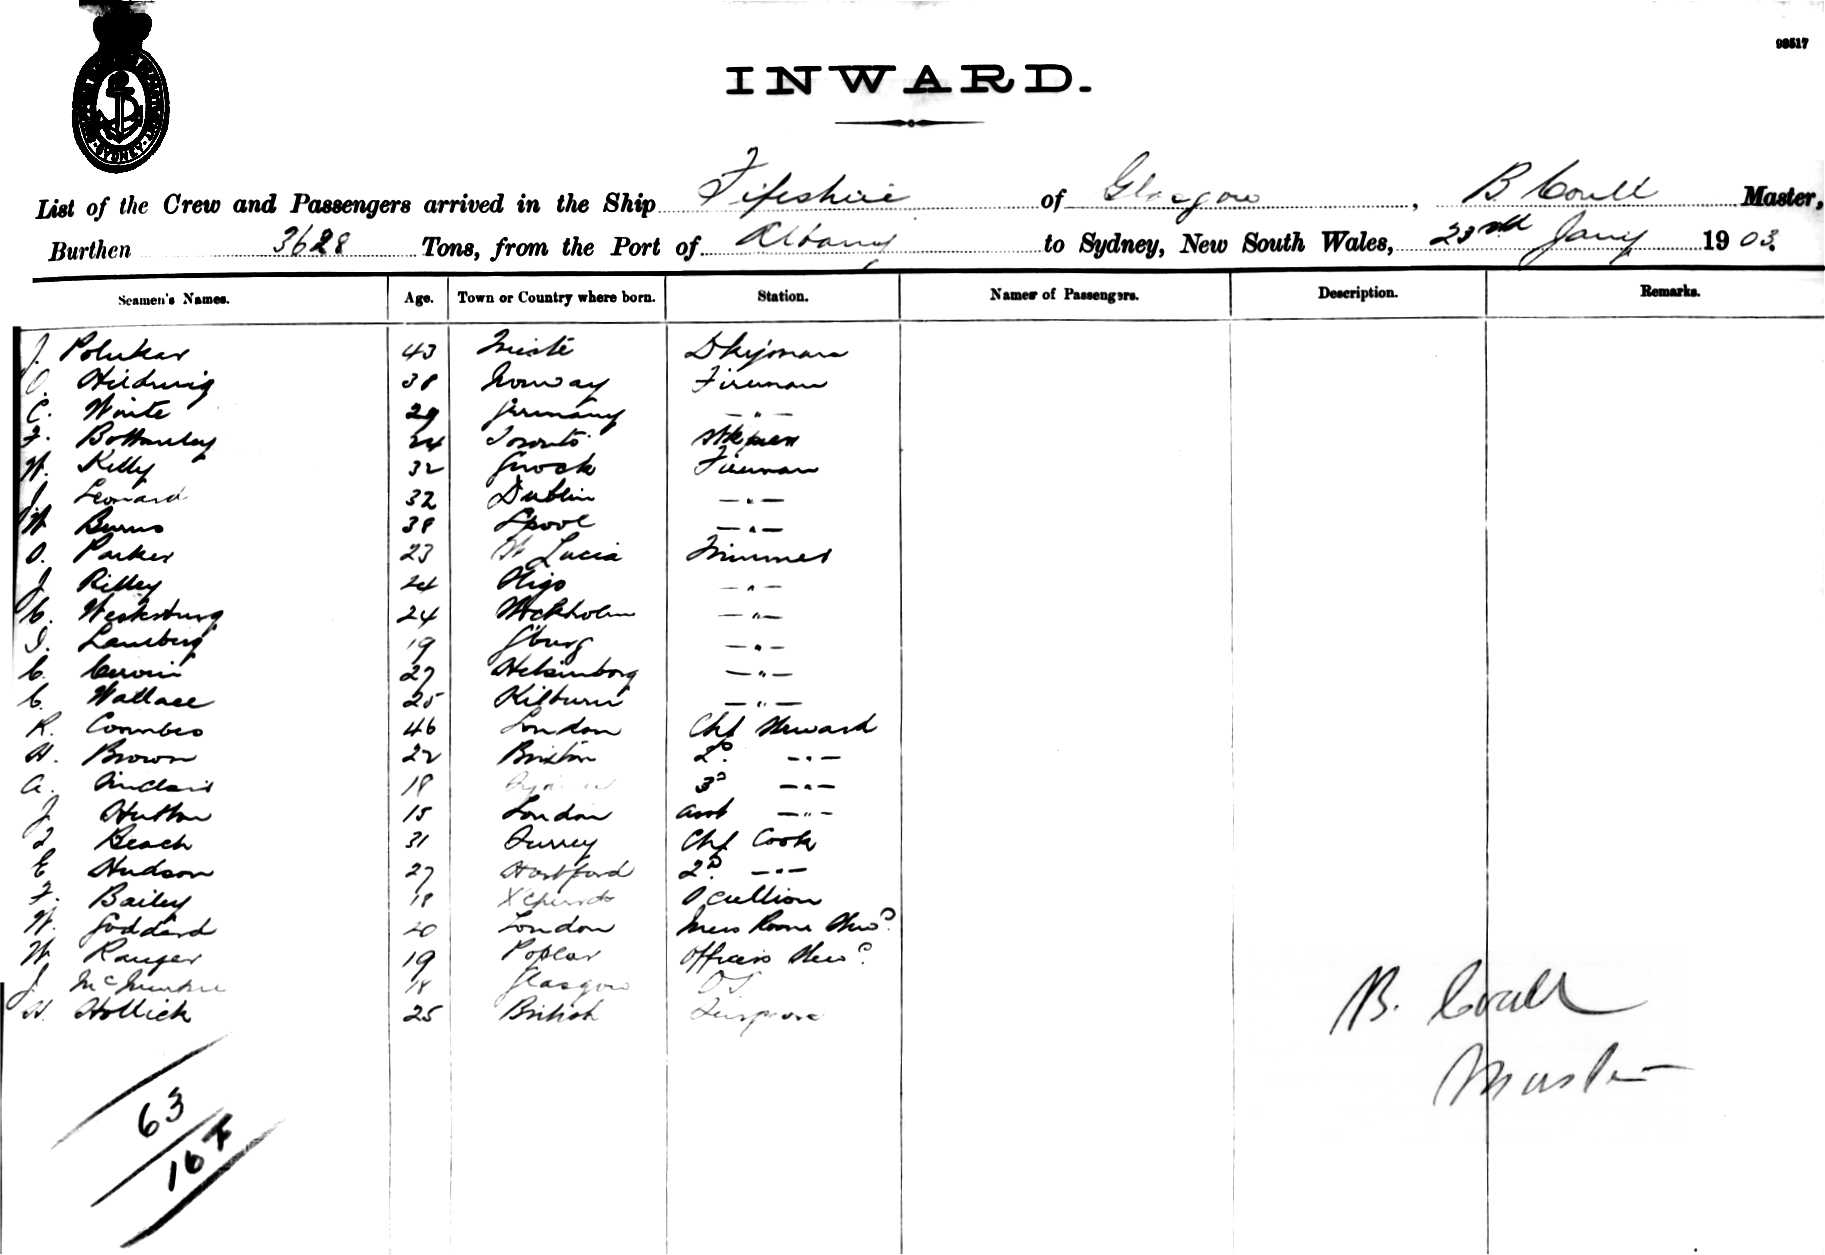 98517
INWARD.
SYDNEY
List of the Crew and Passengers arrived in the Ship Fifeshire of Glasgow, B Coull Master,
Burthen 3628 Tons, from the Port of Albany to Sydney, New South Wales, 23rd Jany 1903.
Seamen's Names. Age. Town or Country where born. Station. Names of Passengers. Description. Remarks.
J. Polukar 43 Trieste Dkyman
O. Hildwig 38 Norway Fireman
C. Winte 29 Germany — " —
F. Bottomley 24 Toronto Stkpers
W. Kelly 32 Gnock Fireman
J. Leonard 32 Dublin — " —
W Burns 38 Lpool — " —
O. Parker 23 St Lucia Trimmer
J Rilley 24 Sligo — " —
C. Westerburg 24 Stockholm — " —
I. Lansberg 19 Gburg — " —
C. 27 Helsinborg — " —
C. Wallace 25 Kilburn — " —
R. Coombes 46 London Chf Steward
H. Brown 22 Brixton 2D. — " —
A. Sinclair 18 3D — " —
J Hutton 15 London Asst — " —
J Beach 31 Surrey Chf Cook
E Hudson 27 Hartford 2D. — " —
F. Bailey 18 Scullion
W. Goddard 20 London Mess Room Stwd
W Ranger 19 Poplar Officers Stwd
J. 18 Glasgow OS
H. Hollick 25 British
B. Coull
Master
63
16 F